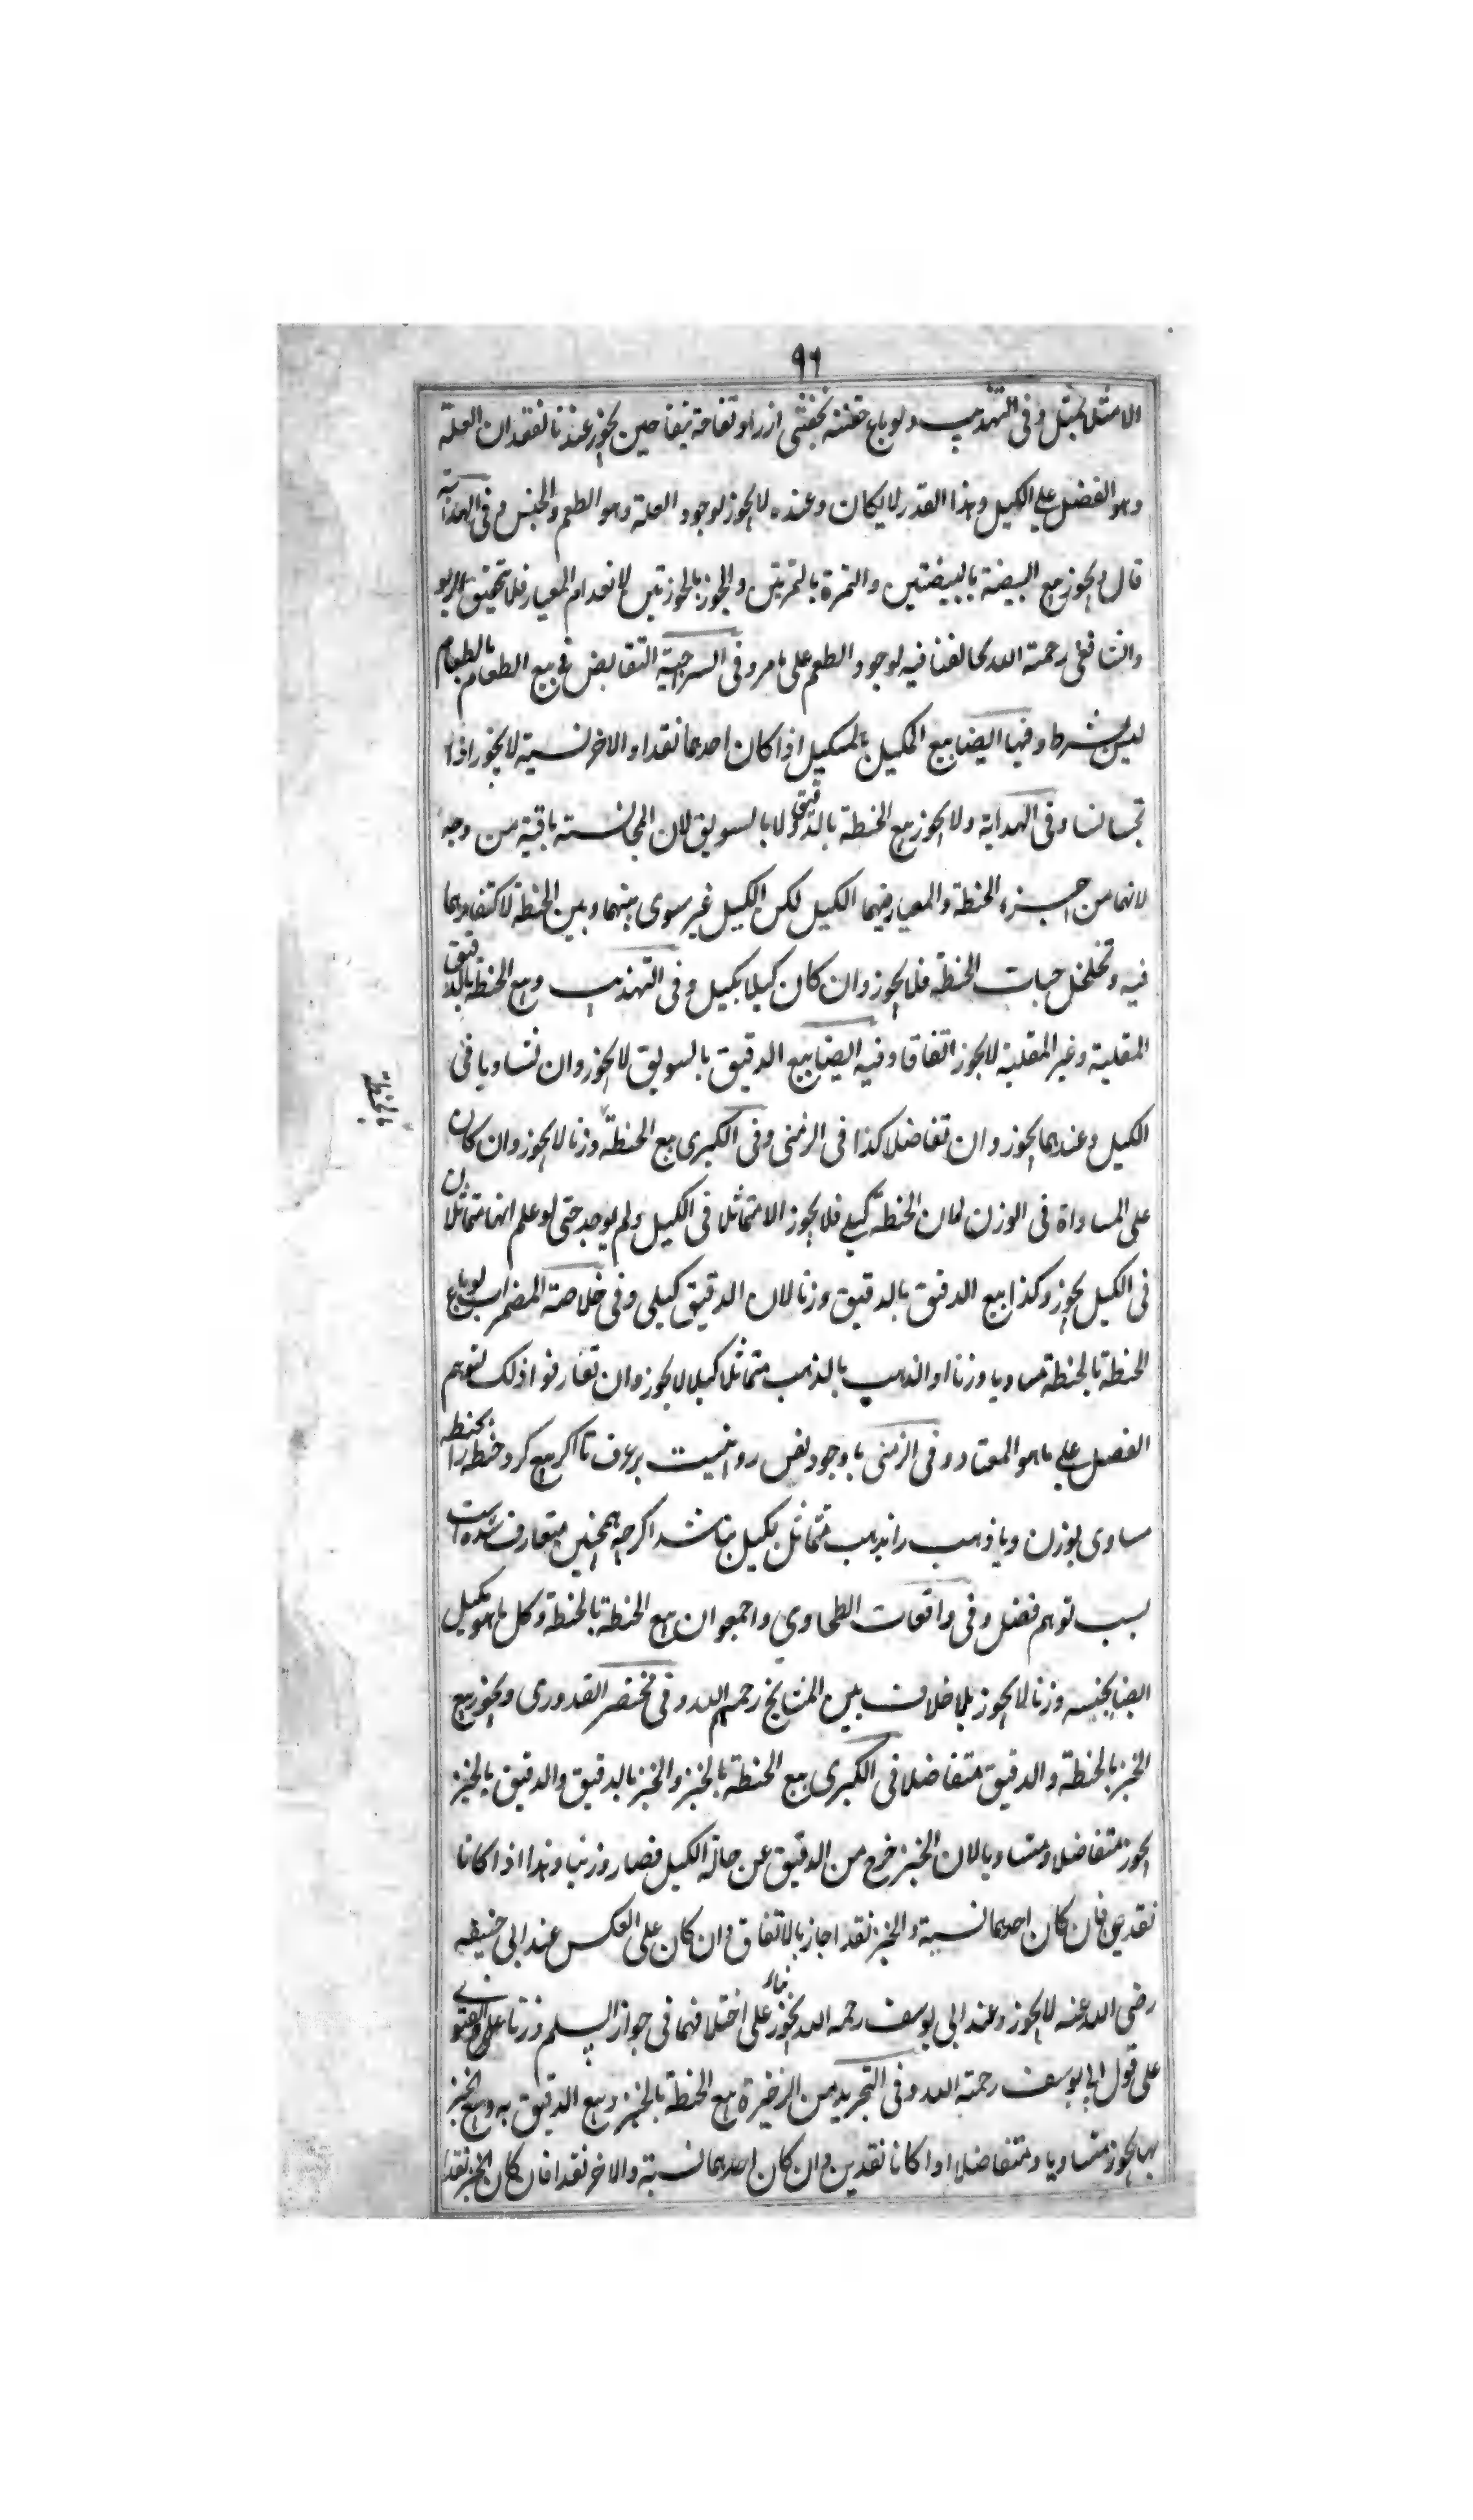 ٩٦
الا مثلا بمثل وفى التهذيب ولو باع حفنة بحفنتى ارز او تفاحة بتفاحين يجوز عندنا لفقدان العلة
وهو الفضل على الكيل وهذا القدر لا يكال وعنده لا يجوز لوجود العلة وهو الطعم والجنس وفى الهداية
قال ويجوز بيع البيضة بالبيضتين والتمرة بالتمرتين والجوز بالجوزتين لانعدام المعيار فلا يتحقق الربو
والشافعى رحمة الله يخالفنا فيه لوجود الطعم على ما مر وفى السراجية التقابض فى بيع الطعام بالطعام
ليس بشرط وفيها ايضا بيع المكيل بالمكيل اذا كان احدهما نقدا والاخر نسية لا يجوز اذا
تجانسا وفى الهداية ولا يجوز بيع الحنطة بالدقيق ولا بالسويق لان المجانسة باقية من وجه
لانهما من اجزاء الحنطة والمعيار فيهما الكيل لكن الكيل غير سوى بينهما وبين الحنطة لاكتنازهما
فيه وتخلخل حبات الحنطة فلا يجوز وان كان كيلا بكيل وفى التهذيب وبيع الحنطة بالدقيق
المقلية وغير المقلية لا يجوز اتفاقا وفيه ايضا بيع الدقيق بالسويق لا يجوز وان تساويا فى
الكيل وعندهما يجوز وان تفاضلا كذا فى الزفنى وفى الكبرى بيع الحنطة وزنا لا يجوز وان كان
بالحنطة
على المساواة فى الوزن لان الحنطة كيلى فلا يجوز الا متماثلا فى الكيل ولم يوجد حتى لو علم انهما متماثلان
فى الكيل يجوز وكذا بيع الدقيق بالدقيق وزنا لان الدقيق كيلى وفى خلاصة المضمرات لو باع
الحنطة بالحنطة متساويا وزنا او الذهب بالذهب متماثلا كيلا لا يجوز وان تعارفوا ذلك لتوهم
الفضل على ما هو المعتاد وفى الزفنى باوجود نص روا نيست بر عرف تا اكر بيع كرد حنطه را بحنطه
مساوى بوزن ويا ذهب را بذهب متماثل بكيل نباشد اكرچه همچنين متعارف شده است
بسبب توهم فضل وفى واقعات الطحاوى واجمعوا ان بيع الحنطة بالحنطة وكل ما هو مكيل
ايضا بجنسه وزنا لا يجوز بلا خلاف بين المشايخ رحمهم الله وفى مختصر القدورى ويجوز بيع
الخبز بالحنطة والدقيق متفاضلا فى الكبرى بيع الحنطة بالخبز والخبز بالدقيق والدقيق بالخبز
يجوز متفاضلا ومتساويا لان الخبز خرج من الدقيق عن حالة الكيل فصار وزنيا وهذا اذا كانا
نقدين فان كان احدهما نسية والخبز نقدا جاز بالاتفاق وان كان على العكس عند ابى حنيفه
رضى الله عنه لا يجوز وعند ابى يوسف رحمه الله يجوز بناء على اختلافهما فى جواز السلم وزنا والفتوى
على قول ابى يوسف رحمة الله وفى التجريد من الذخيرة بيع الحنطة بالخبز وبيع الدقيق به وبيع الخبز
بهما يجوز متساويا ومتفاضلا اذا كانا نقدين وان كان احدهما نسية والاخر نقدا فان كان الخبز نقدا